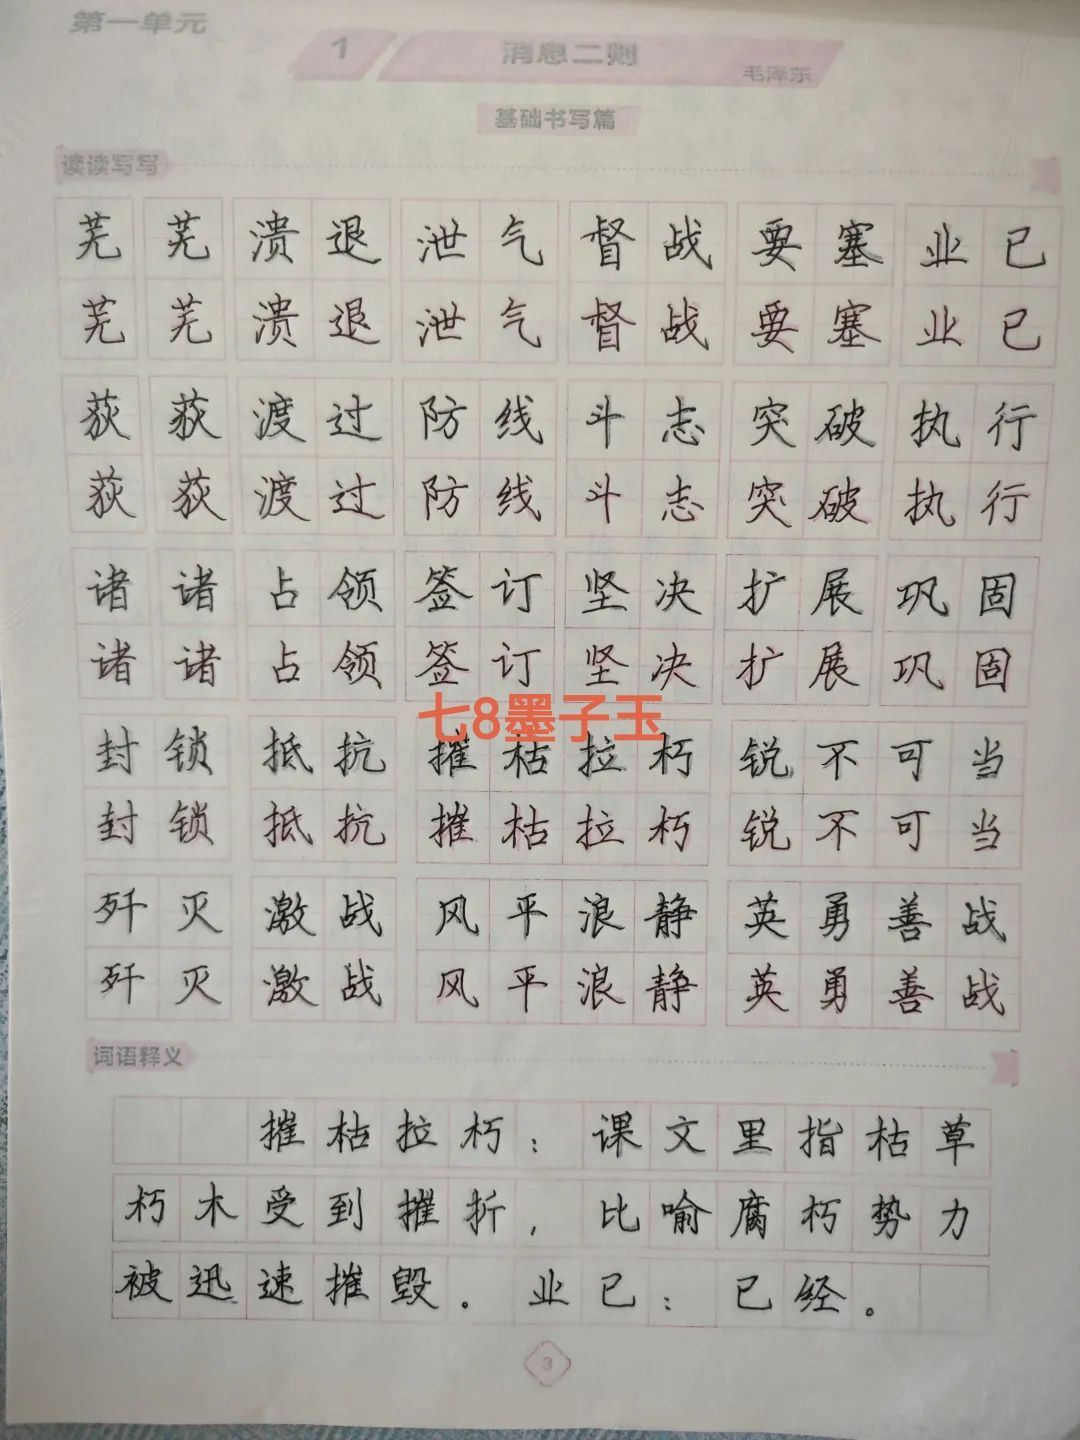 第一单元
1 消息二则
毛泽东
基础书写篇
读读写写
芜 芜 溃退 泄气 督战 要塞 业已
芜 芜 溃退 泄气 督战 要塞 业已
荻 荻 渡过 防线 斗志 突破 执行
荻 荻 渡过 防线 斗志 突破 执行
诸 诸 占领 签订 坚决 扩展 巩固
诸 诸 占领 签订 坚决 扩展 巩固
七8墨子玉
封锁 抵抗 摧枯拉朽 锐不可当
封锁 抵抗 摧枯拉朽 锐不可当
歼灭 激战 风平浪静 英勇善战
歼灭 激战 风平浪静 英勇善战
词语释义
摧枯拉朽：课文里指枯草
朽木受到摧折，比喻腐朽势力
被迅速摧毁。业已：已经。
3